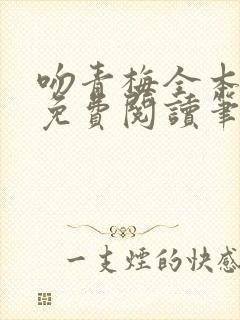 吻青梅全本
免費閱讀筆
一支煙的快感